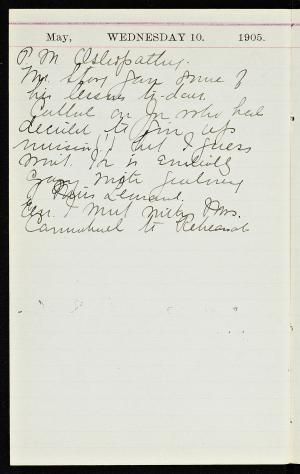 May, WEDNESDAY 10. 1905.
P. M Osteopathy.
Mr. Story gave some of
his lessons to-day.
Called on who had
decided to give up
nursing, but I guess
wont. is entirely
crazy with jealousy
Demand.
Eve. I went with Mrs.
Carmichael to Rehearsal